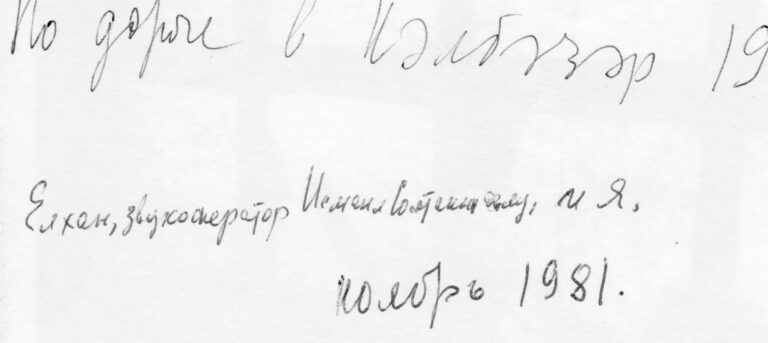 По дороге в Кəлбəҹəр 19
Елхан, звукооператор Исмаил и я.
ноябрь 1981.